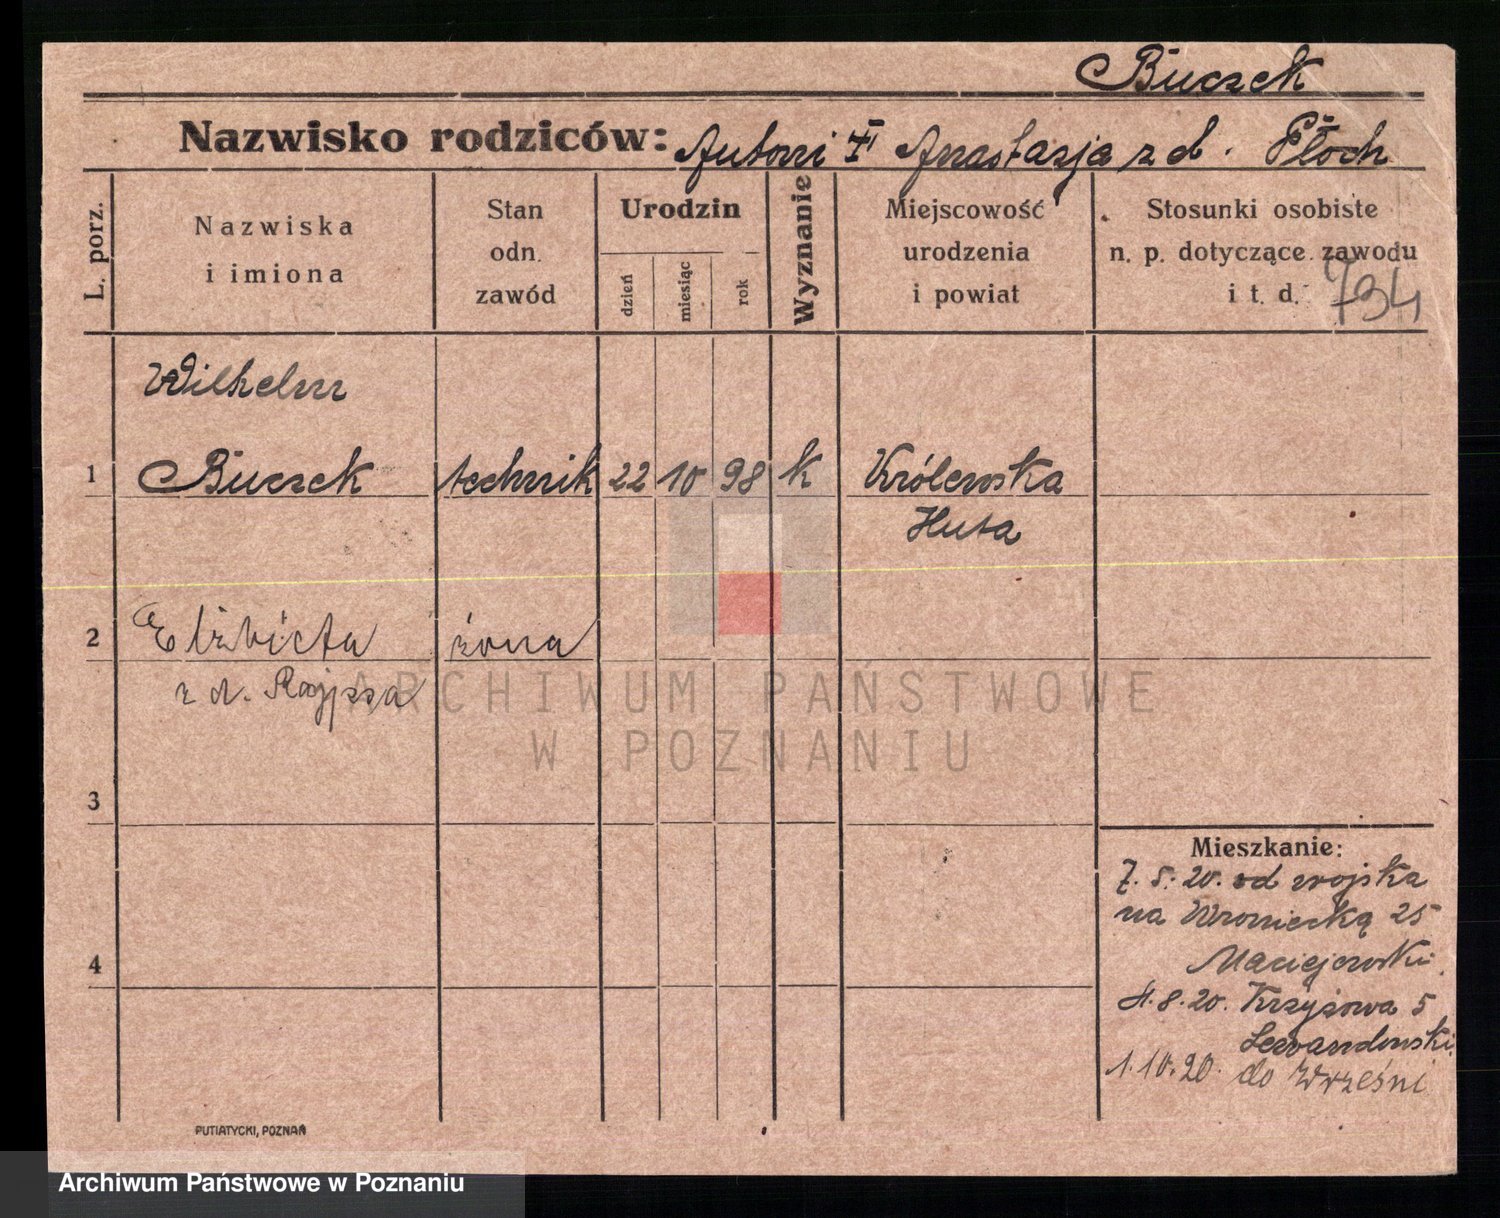 Buczek
Nazwisko rodziców: Antoni i Anastazja z d. Płoch
L. porz.
Nazwiska i imiona
Stan odn. zawód
Urodzin
dzień
miesiąc
rok
Wyznanie
Miejscowość urodzenia i powiat
Stosunki osobiste n. p. dotyczące zawodu i t. d.
734
Wilhelm
1 Buczek technik 22 10 98 k Królewska
Huta
2 Elżbieta żona
z d. Rajpsza
3
4
Mieszkanie:
7.5.20. od wojska
na Wroniecką 25
Maciejewski
8.20. Krzyżowa 5
Lewandowski
1.10.20. do Wrześni
PUTIATYCKI, POZNAŃ
ARCHIWUM PAŃSTWOWE
W POZNANIU
Archiwum Państwowe w Poznaniu